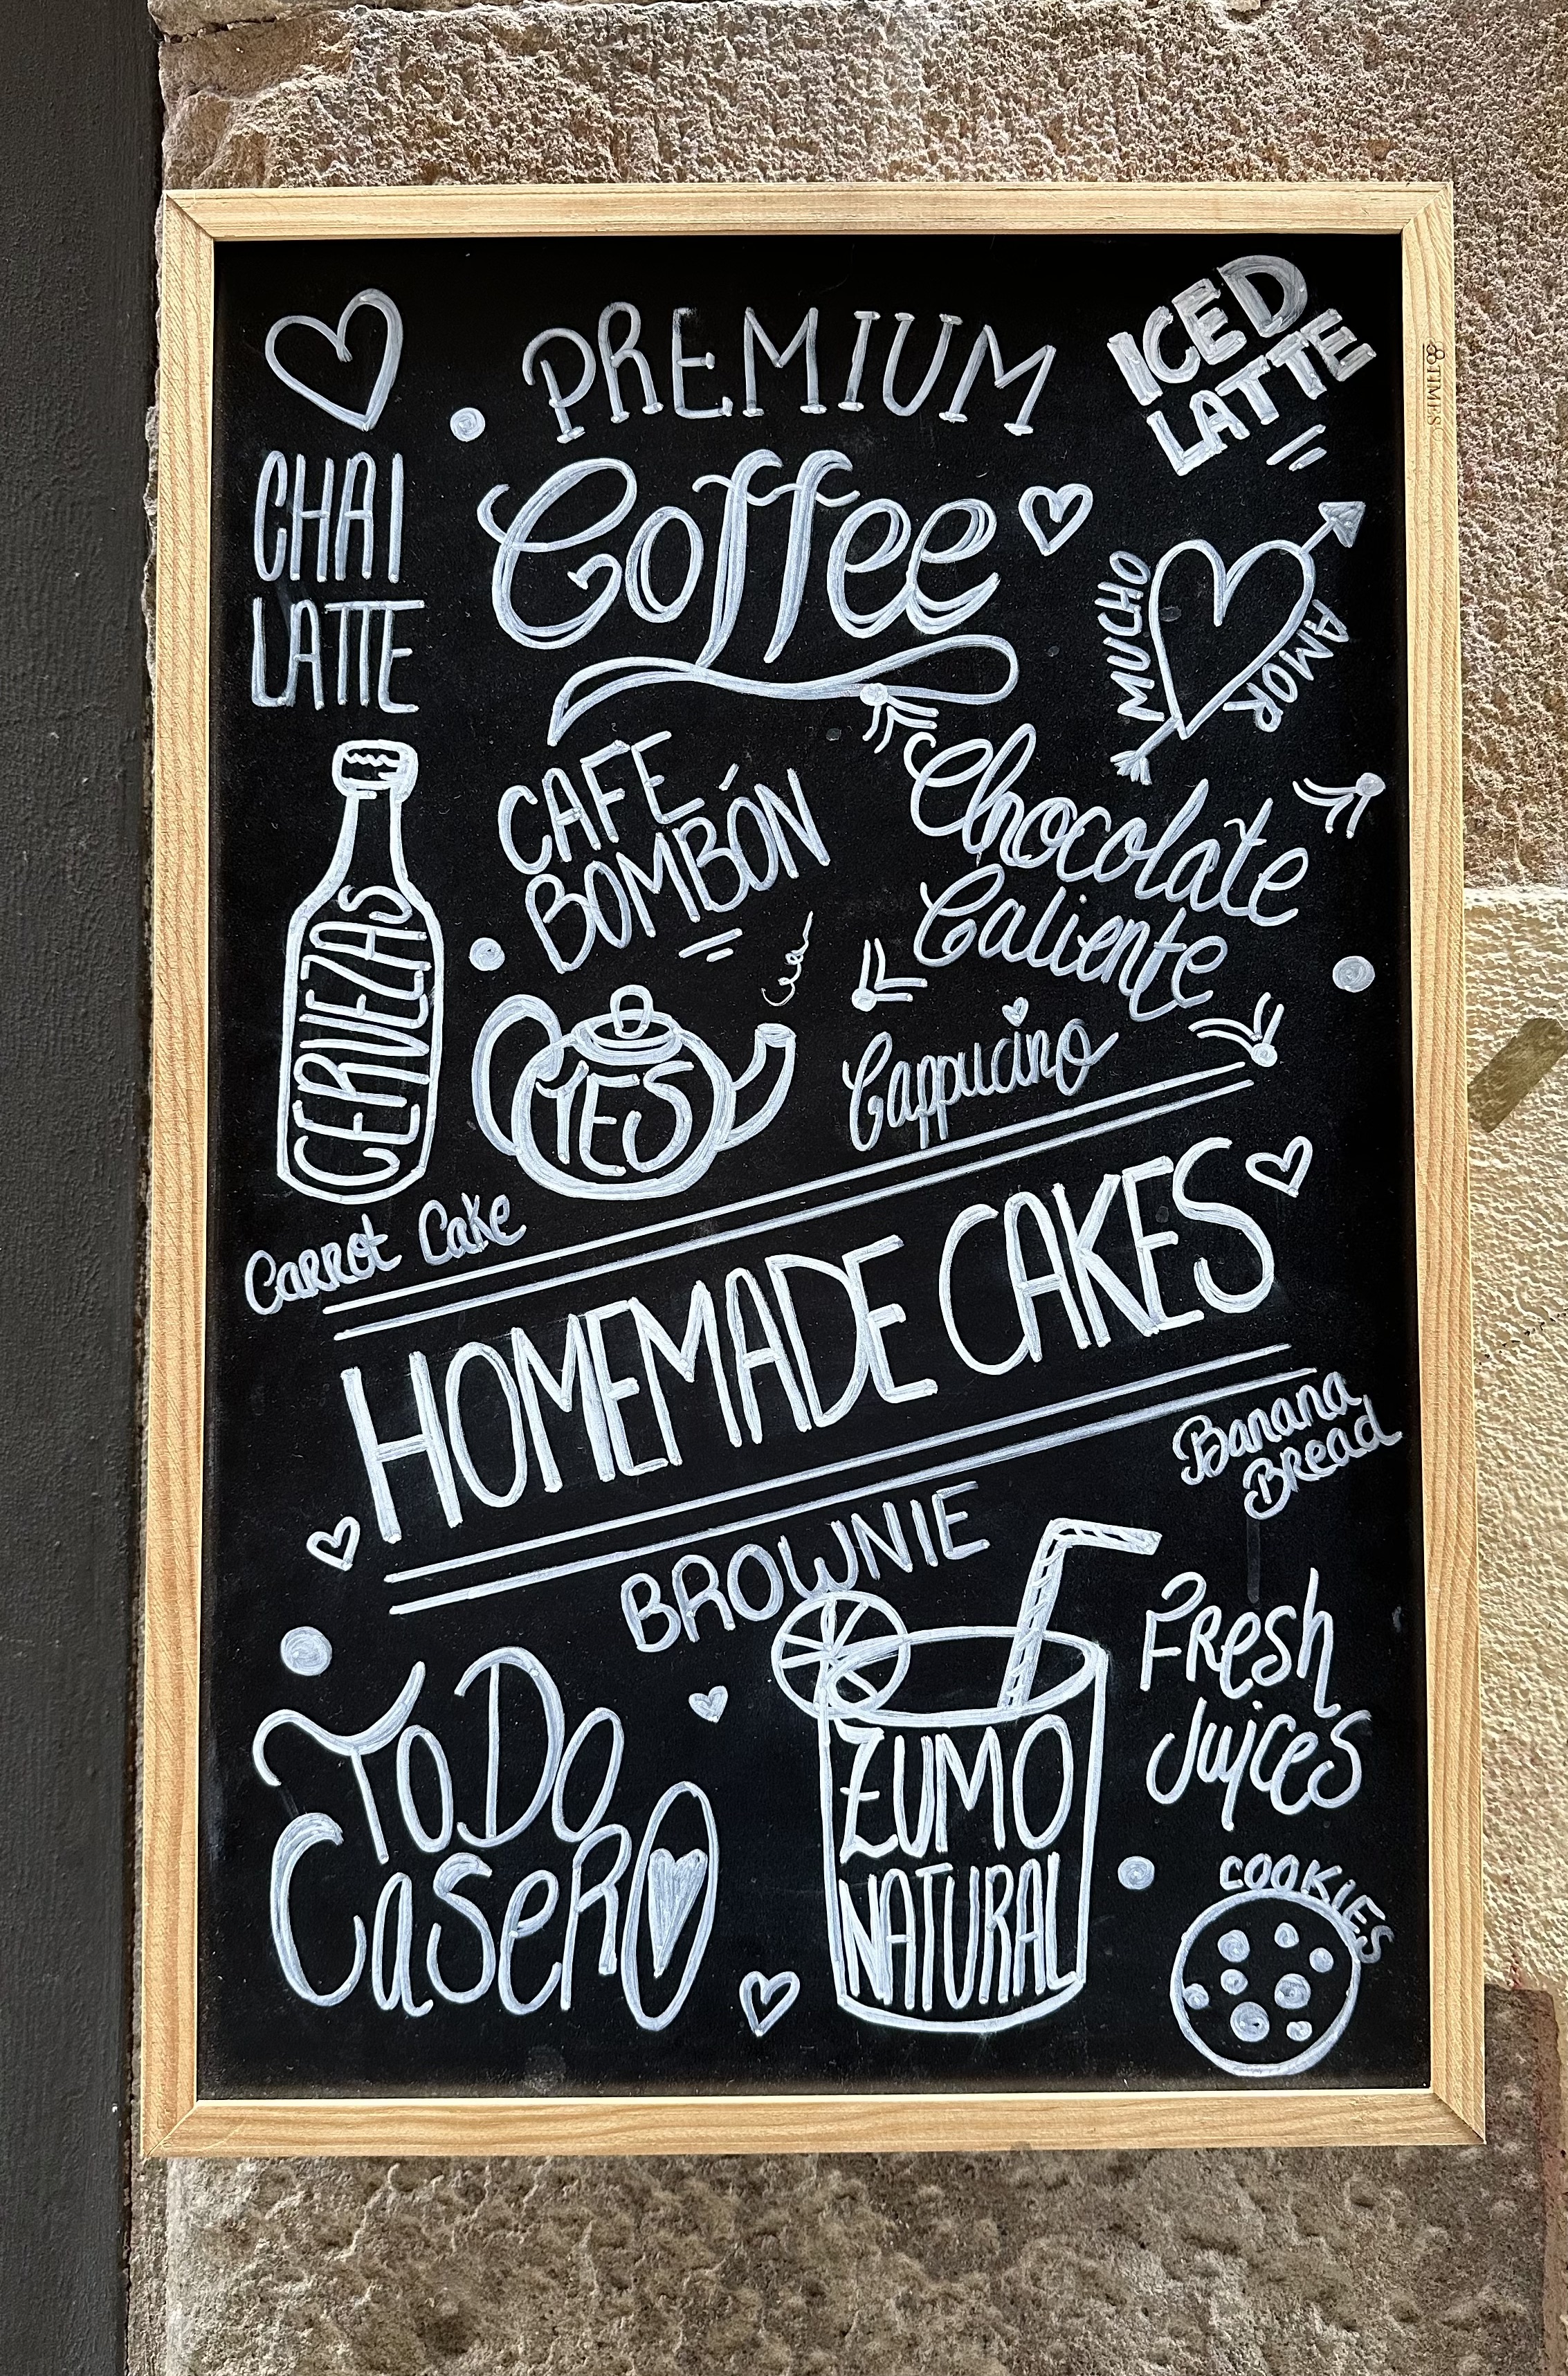 PREMIUM
Coffee
ICED
LATTE
CHAI
LATTE
MUCHO
AMOR
CAFE
BOMBÓN
Chocolate
Caliente
CERVEZAS
TES
Cappucino
Carrot Cake
HOMEMADE CAKES
Banana
Bread
BROWNIE
Fresh
Juices
ToDo
CaseRO
ZUMO
NATURAL
COOKIES
TIMES